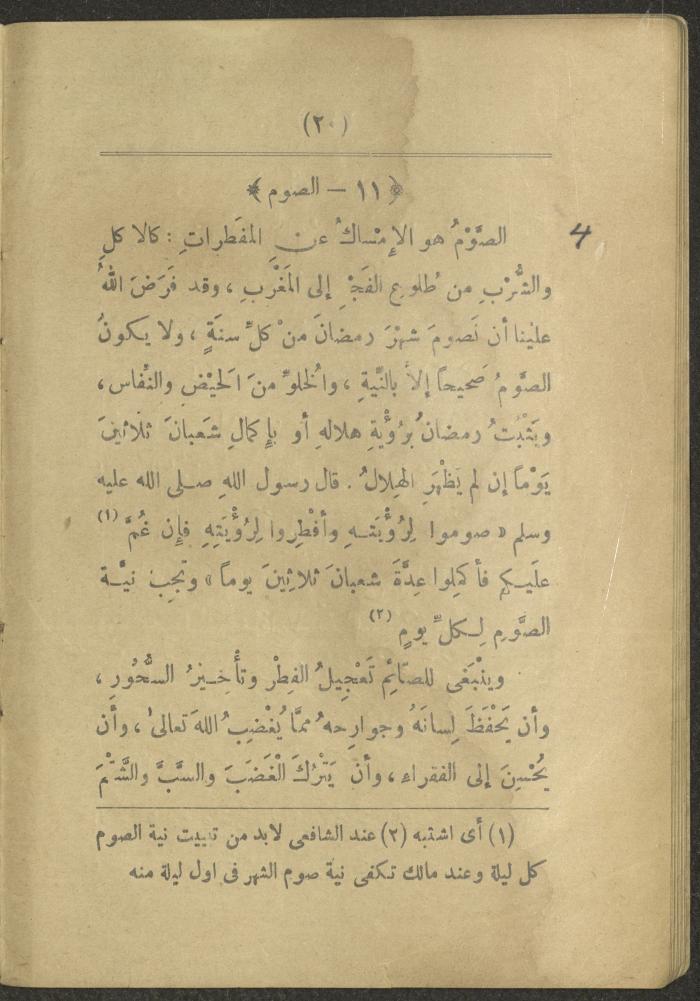 (٢٠)
﴿ ١١ – الصوم ﴾
الصَّوْمُ هو الإِمْساكُ عنِ المفَطراتِ : كالاكلِ
4
والشُّرْبِ من طُلوعِ الفَجْرِ إلى المَغْرِبِ ، وقد فَرَضَ اللهُ
علينا أن نَصومَ شهْرَ رمضانَ منْ كلِّ سنَةٍ ، ولا يكونُ
الصَّوْمُ صَحيحاً إلاَّ بالنِّيةِ ، والخلوِّ منَ الحيْضِ والنِّفاس ،
ويَثْبُتُ رمضانُ برُؤْيةِ هلالهِ أو بإِكمالِ شَعبانَ ثلاثينَ
يَوْماً إن لم يَظْهَرِ الهِلالُ . قال رسول اللهِ صلى الله عليه
وسلم « صوموا لِرُؤْيَتهِ وأفْطِروا لِرُؤْيَتِهِ فإِن غُمَّ (١)
علَيكم فأ كمِلوا عِدَّةَ شعبانَ ثلاثِينَ يوماً » وتجِبُ نيَّة
الصَّوْمِ لِكلِّ يومٍ (٢)
وينْبَغى للصّائِمِ تَعْجِيلُ الفِطْرِ وتأْخِيرُ السَّحُورِ ،
وأن يَحْفَظَ لِسانَهُ وجوارِحهُ ممَّا يُغْضِبُ اللهَ تعالىٰ ، وأن
يُحْسِنَ إلى الفقراءِ ، وأن يَتْرُكَ الْغَضَبَ والسَّبَّ والشَّتْمَ
(١) أى اشتبه (٢) عند الشافعى لابد من تبييت نية الصوم
كل ليلة وعند مالك تكفى نية صوم الشهر فى اول ليلة منه